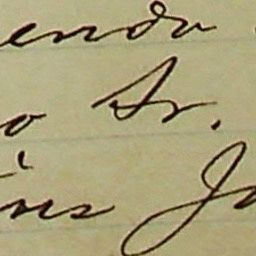 endo
o Sr.
ins Jo